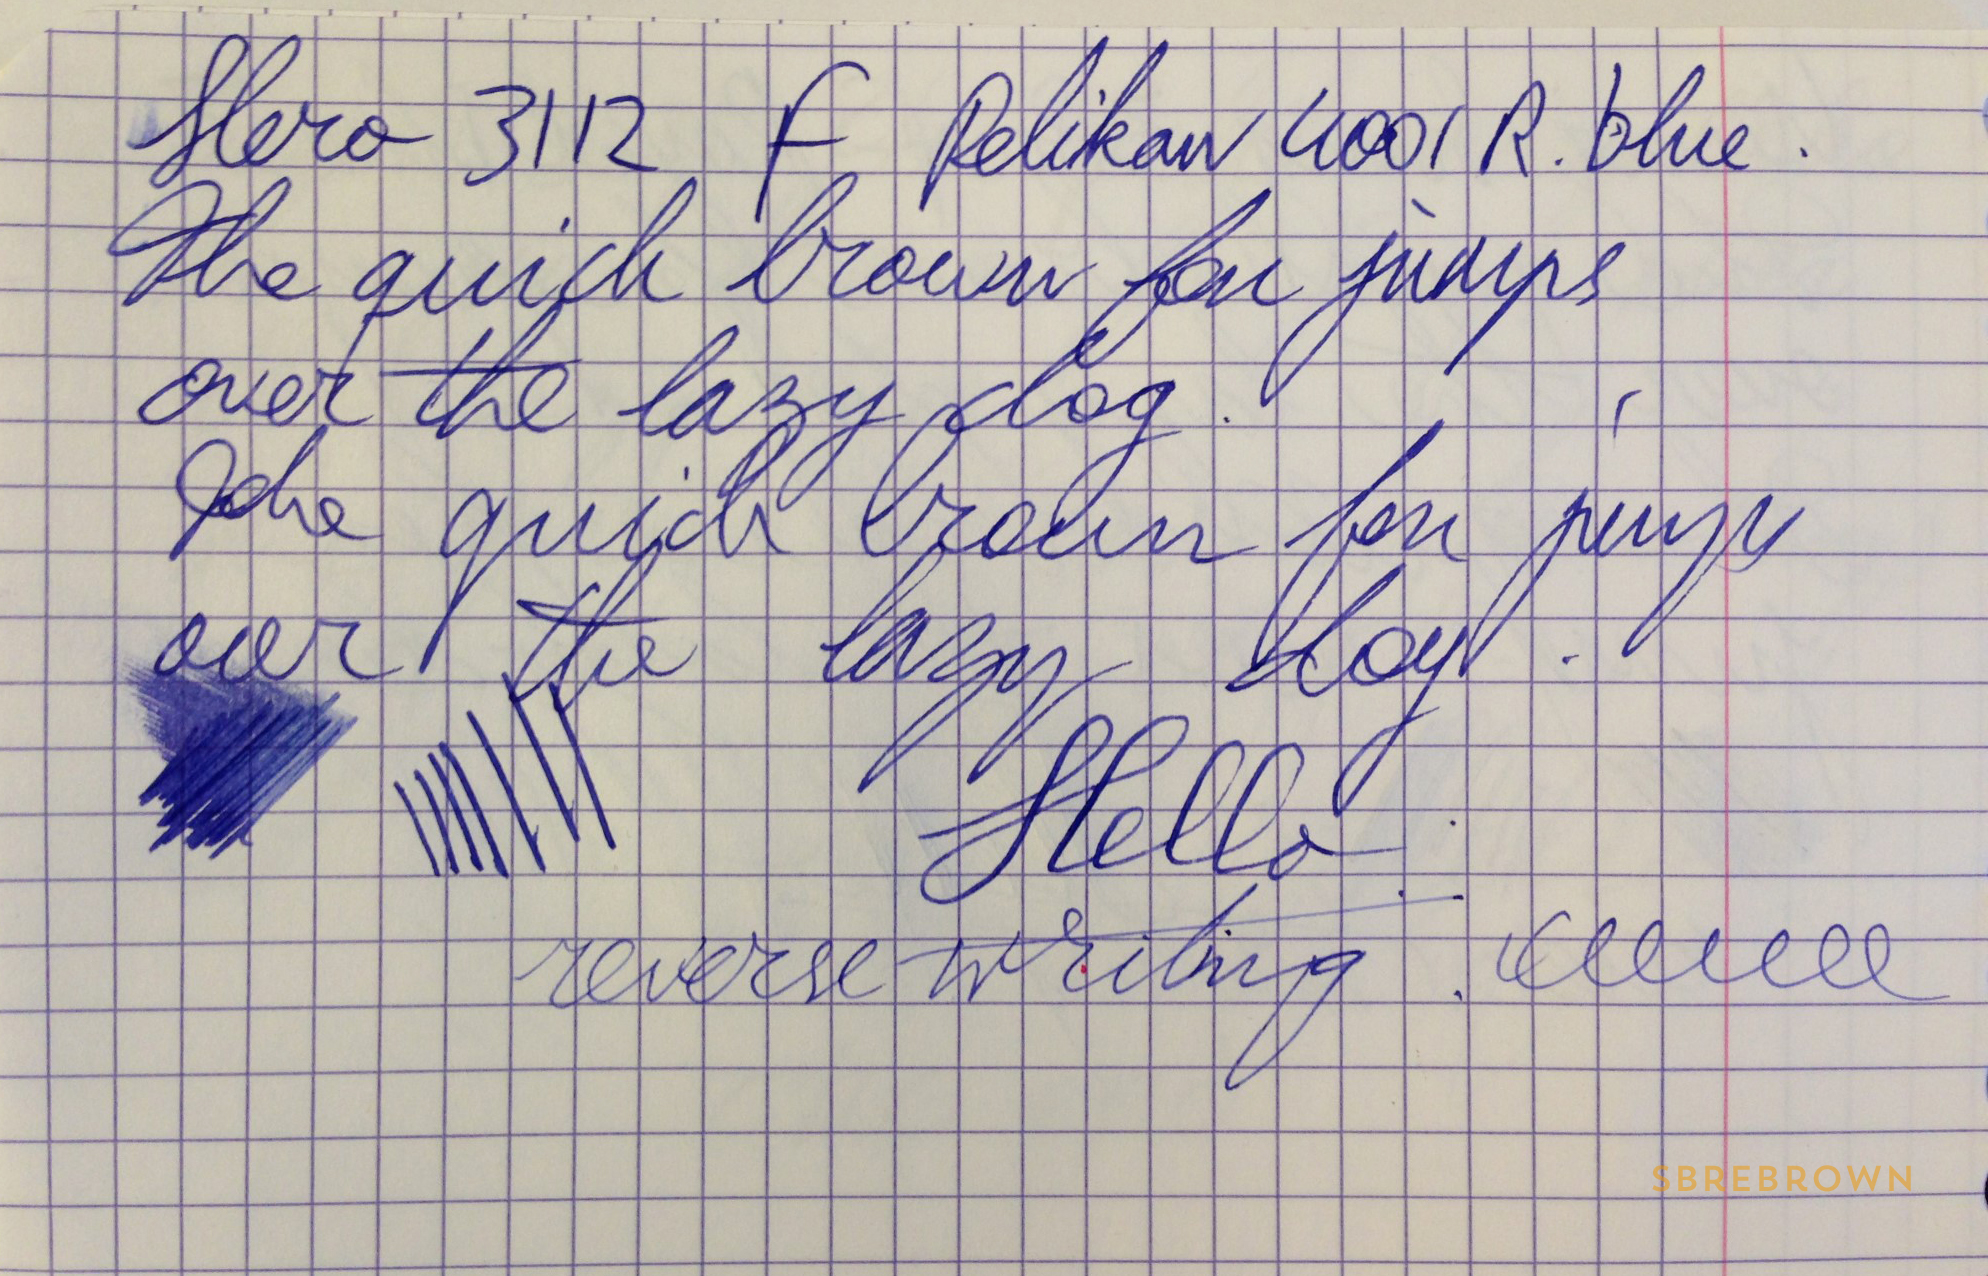 Hero 3112 F Pelikan 4001 R. blue.
The quick brown fox jumps
over the lazy dog.
The quick brown fox jumps
over the lazy dog.
Hello
reverse writing.
SBREBROWN